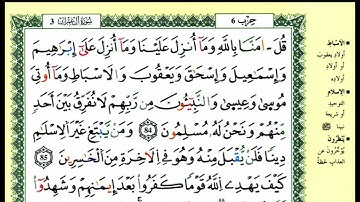 حزب 6
سورة آل عمران 3
قُلَ-امَنَّا بِاللَّهِ وَمَآ أُنزِلَ عَلَيْنَا وَمَآ أُنزِلَ عَلَىٰٓ إِبْرَٰهِيمَ
وَإِسْمَٰعِيلَ وَإِسْحَٰقَ وَيَعْقُوبَ وَالَاسْبَاطِ وَمَآ أُوتِىَ
مُوسَىٰ وَعِيسَىٰ وَالنَّبِيٓـُٔونَ مِن رَّبِّهِمْ لَا نُفَرِّقُ بَيْنَ أَحَدٍ
مِّنْهُمْ وَنَحْنُ لَهُۥ مُسْلِمُونَ 84 وَمَنْ يَّبْتَغِ غَيْرَ الِاسْلَٰمِ
دِينًا فَلَنْ يُّقْبَلَ مِنْهُ وَهُوَ فِى الَاخِرَةِ مِنَ الْخَٰسِرِينَ
85 كَيْفَ يَهْدِى اللَّهُ قَوْمًا كَفَرُوا۟ بَعْدَ إِيمَٰنِهِمْ وَشَهِدُوٓا۟
الأسباط
أولاد يعقوب
أو أولاد
أولاده
الإسلام
التوحيد
أو شريعة
نبينا
يُنظَرون
يؤخرون عن
العذاب لحظة